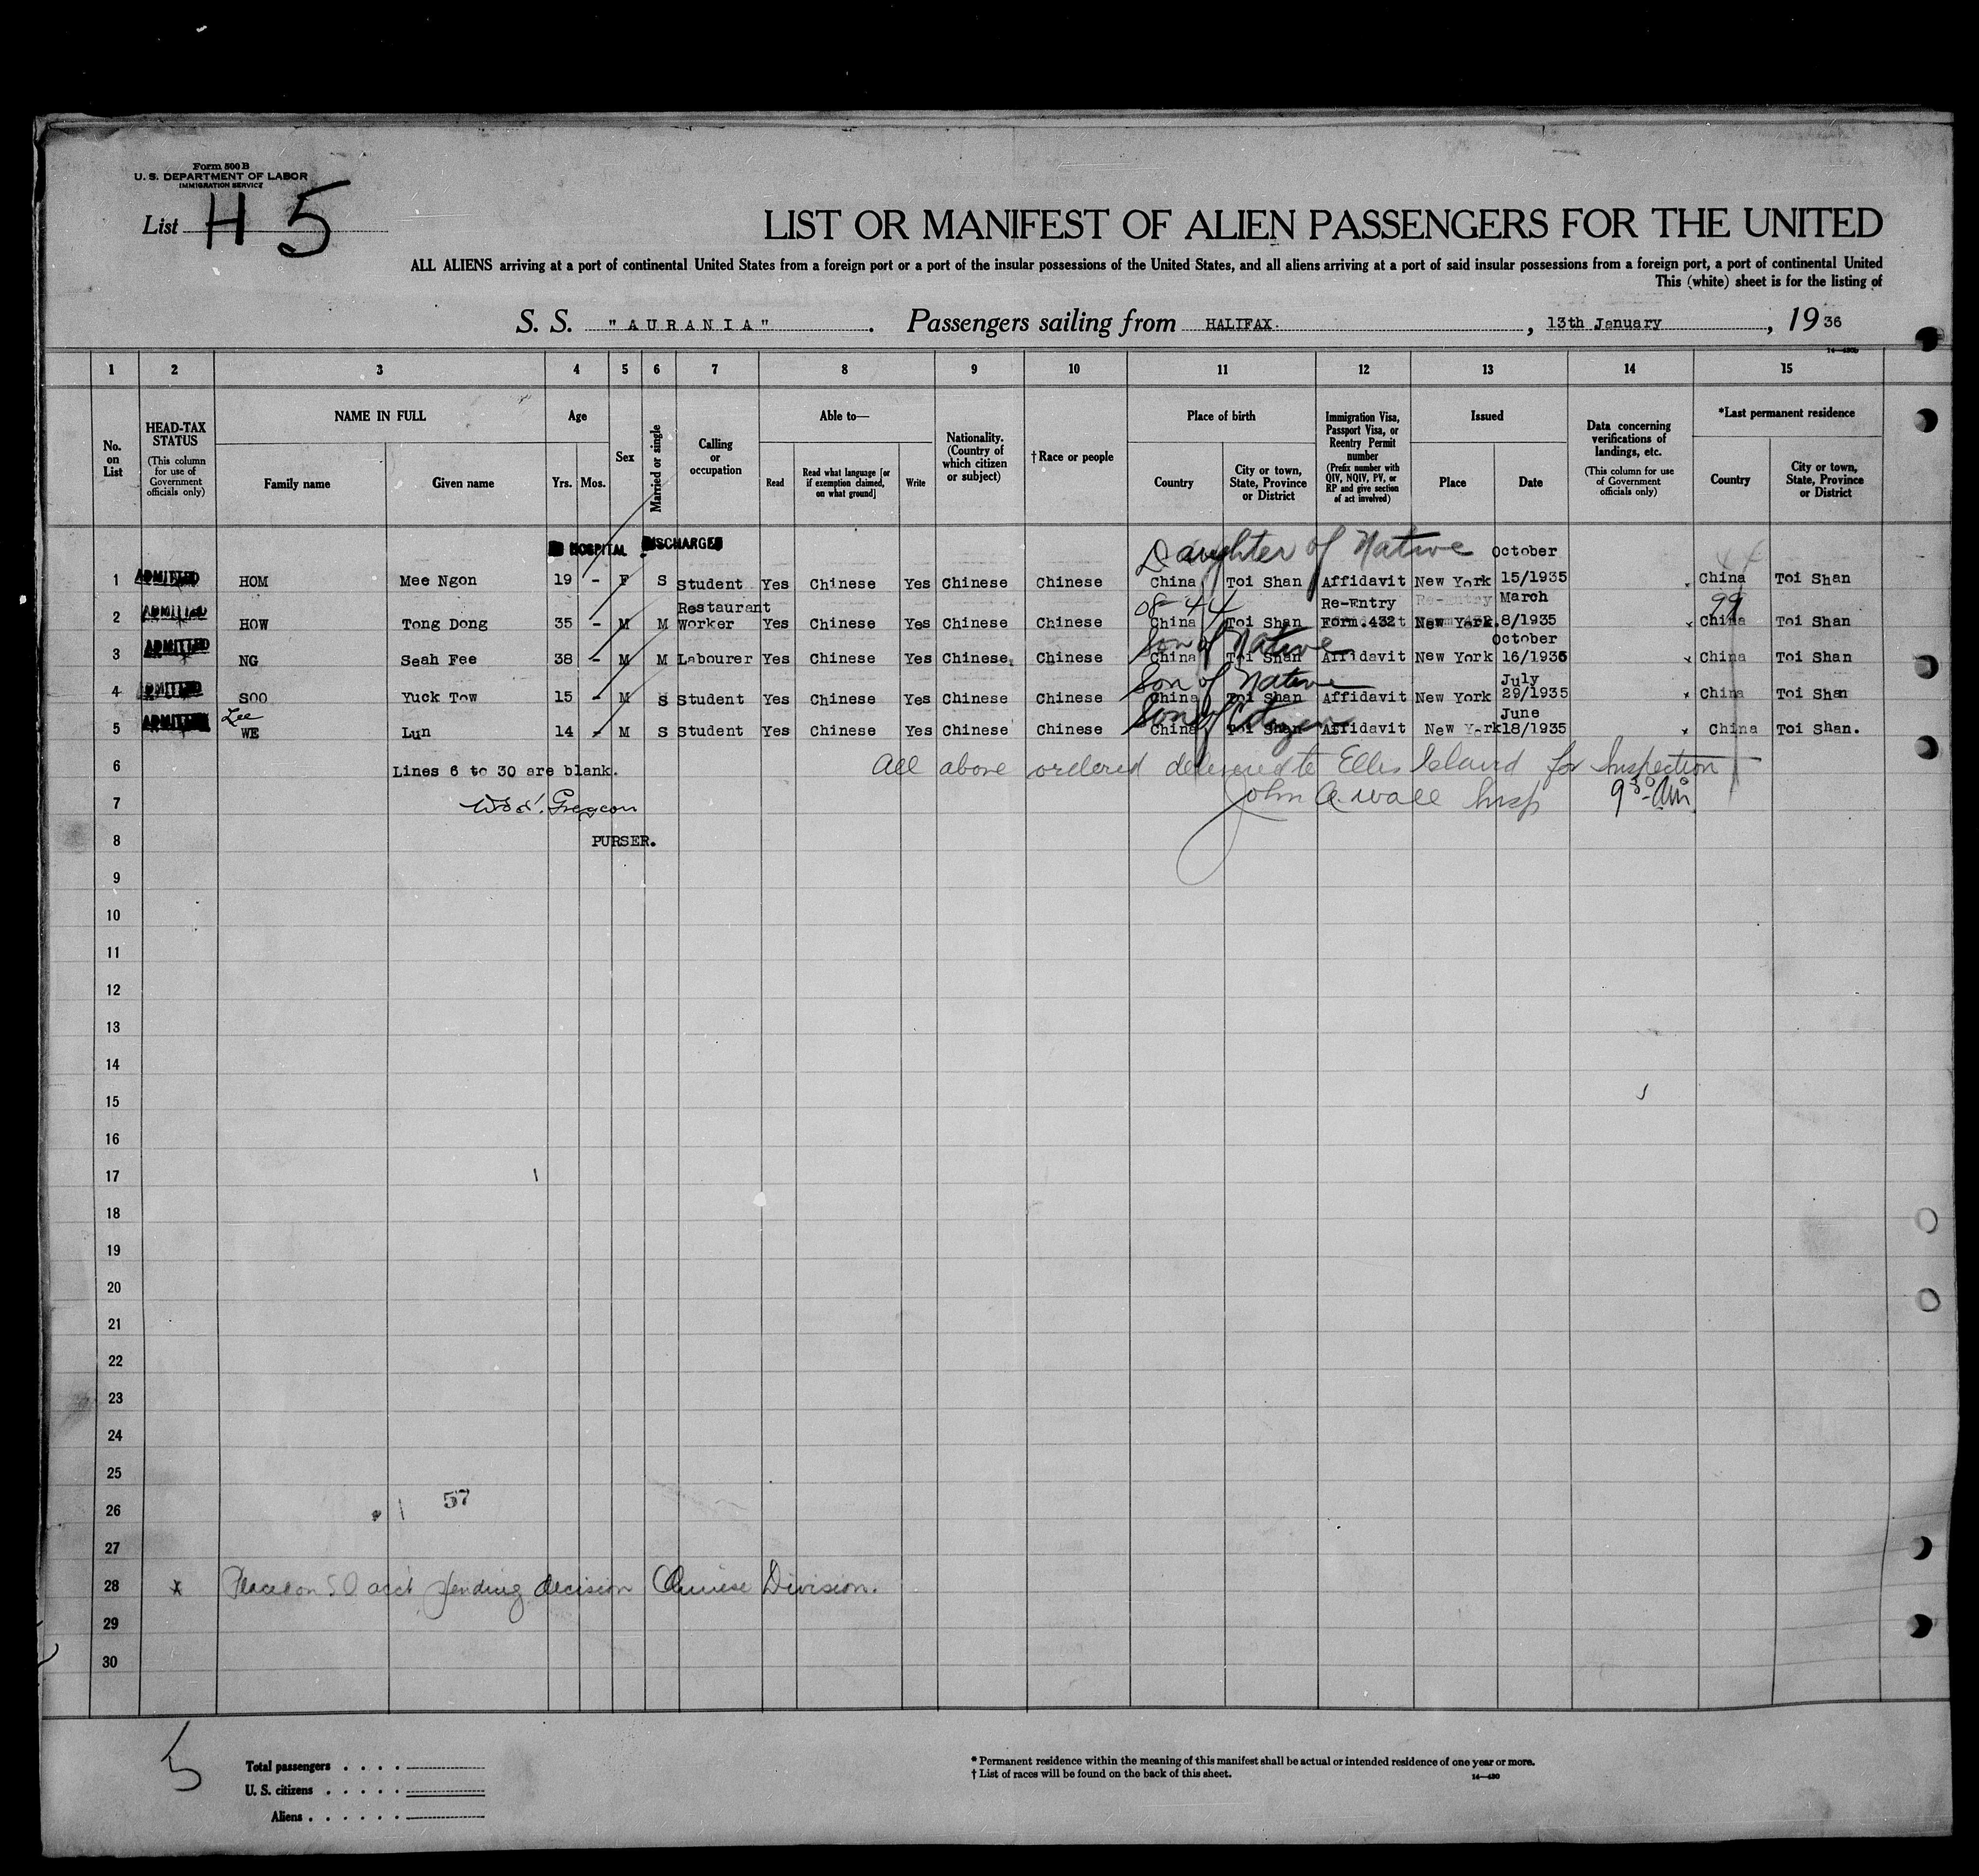 Form 500 B
U. S. DEPARTMENT OF LABOR
IMMIGRATION SERVICE
List H 5
LIST OR MANIFEST OF ALIEN PASSENGERS FOR THE UNITED
ALL ALIENS arriving at a port of continental United States from a foreign port or a port of the insular possessions of the United States, and all aliens arriving at a port of said insular possessions from a foreign port, a port of continental United
This (white) sheet is for the listing of
S. S. "AURANIA". Passengers sailing from HALIFAX. , 13th January , 19 36
1 2 3 4 5 6 7 8 9 10 11 12 13 14 15
No. on List
HEAD-TAX STATUS (This column for use of Government officials only)
NAME IN FULL
Family name Given name
Age
Yrs. Mos.
Sex
Married or single
Calling or occupation
Able to—
Read Read what language [or if exemption claimed, on what ground] Write
Nationality. (Country of which citizen or subject)
†Race or people
Place of birth
Country City or town, State, Province or District
Immigration Visa, Passport Visa, or Reentry Permit number (Prefix number with QIV, NQIV, PV, or RP and give section of act involved)
Issued
Place Date
Data concerning verifications of landings, etc. (This column for use of Government officials only)
*Last permanent residence
Country City or town, State, Province or District
HOSPITAL DISCHARGED
Daughter of Native October
1 ADMITTED HOM Mee Ngon 19 - F S Student Yes Chinese Yes Chinese Chinese China Toi Shan Affidavit New York 15/1935 China Toi Shan
Restaurant Re-Entry March
2 ADMITTED HOW Tong Dong 35 - M M Worker Yes Chinese Yes Chinese Chinese China Toi Shan Form.432 New York. 8/1935 China Toi Shan
Son of Native October
3 ADMITTED NG Seah Fee 38 - M M Labourer Yes Chinese Yes Chinese. Chinese China Toi Shan Affidavit New York 16/1935 China Toi Shan
Son of Native July
4 ADMITTED SOO Yuck Tow 15 - M S Student Yes Chinese Yes Chinese Chinese China Toi Shan Affidavit New York 29/1935 China Toi Shan
Lee Son of Citizen June
5 ADMITTED WE Lun 14 - M S Student Yes Chinese Yes Chinese Chinese China Toi Shan Affidavit New York 18/1935 China Toi Shan.
6 Lines 6 to 30 are blank. All above ordered delivered to Ellis Island for Inspection
7 John A. Wall Insp 9 30 AM
8 PURSER.
9
10
11
12
13
14
15
16
17
18
19
20
21
22
23
24
25
26 57
27
28 x Placed on SO acct pending decision Chinese Division.
29
30
5
Total passengers . . . .
U. S. citizens . . . . .
Aliens . . . . . .
* Permanent residence within the meaning of this manifest shall be actual or intended residence of one year or more.
† List of races will be found on the back of this sheet.
14—430